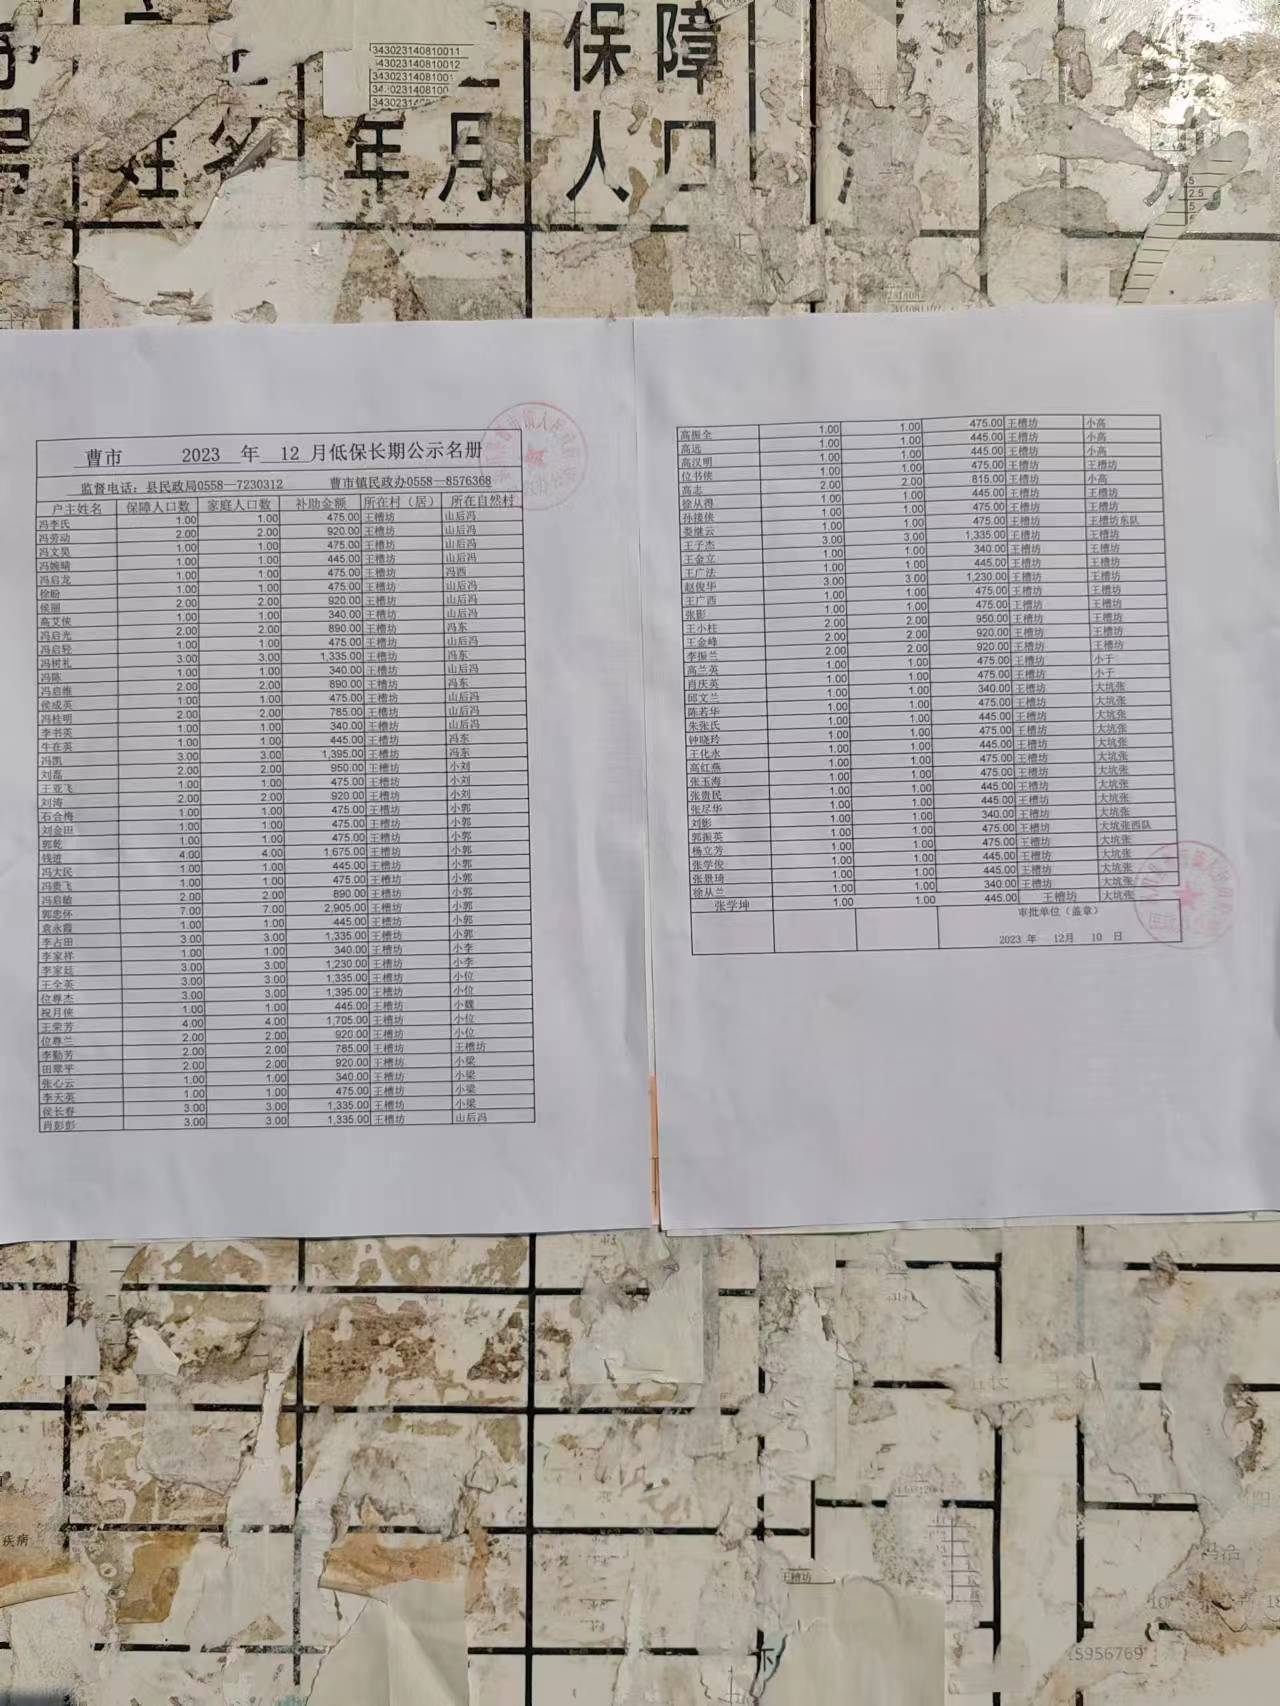 保障
343023140810011
343023140810012
姓名 年月 人口
曹市 2023 年 12 月低保长期公示名册
监督电话：县民政局0558—7230312 曹市镇民政办0558—8576368
户主姓名 保障人口数 家庭人口数 补助金额 所在村（居） 所在自然村
冯李氏 1.00 1.00 475.00 王槽坊 山后冯
冯劳动 2.00 2.00 920.00 王槽坊 山后冯
冯文昊 1.00 1.00 475.00 王槽坊 山后冯
冯婉晴 1.00 1.00 445.00 王槽坊 山后冯
冯启龙 1.00 1.00 475.00 王槽坊 冯西
徐盼 1.00 1.00 475.00 王槽坊 山后冯
侯丽 2.00 2.00 920.00 王槽坊 山后冯
高艾侠 1.00 1.00 340.00 王槽坊 山后冯
冯启光 2.00 2.00 890.00 王槽坊 冯东
冯启轻 1.00 1.00 475.00 王槽坊 山后冯
冯树礼 3.00 3.00 1,335.00 王槽坊 冯东
冯陈 1.00 1.00 340.00 王槽坊 山后冯
冯启维 2.00 2.00 890.00 王槽坊 冯东
侯成英 1.00 1.00 475.00 王槽坊 山后冯
冯桂明 2.00 2.00 785.00 王槽坊 山后冯
李书英 1.00 1.00 340.00 王槽坊 山后冯
牛在英 1.00 1.00 445.00 王槽坊 冯东
冯凯 3.00 3.00 1,395.00 王槽坊 冯东
刘磊 2.00 2.00 950.00 王槽坊 小刘
王亚飞 1.00 1.00 475.00 王槽坊 小刘
刘涛 2.00 2.00 920.00 王槽坊 小刘
石合梅 1.00 1.00 475.00 王槽坊 小郭
刘金田 1.00 1.00 475.00 王槽坊 小郭
郭乾 1.00 1.00 475.00 王槽坊 小郭
钱进 4.00 4.00 1,675.00 王槽坊 小郭
冯大民 1.00 1.00 445.00 王槽坊 小郭
冯贵飞 1.00 1.00 475.00 王槽坊 小郭
冯启敏 2.00 2.00 890.00 王槽坊 小郭
郭忠怀 7.00 7.00 2,905.00 王槽坊 小郭
袁永霞 1.00 1.00 445.00 王槽坊 小郭
李占田 3.00 3.00 1,335.00 王槽坊 小郭
李家祥 1.00 1.00 340.00 王槽坊 小李
李家廷 3.00 3.00 1,230.00 王槽坊 小李
王全英 3.00 3.00 1,335.00 王槽坊 小位
位尊杰 3.00 3.00 1,395.00 王槽坊 小位
祝月侠 1.00 1.00 445.00 王槽坊 小魏
王荣芳 4.00 4.00 1,705.00 王槽坊 小位
位尊兰 2.00 2.00 920.00 王槽坊 小位
李勤芳 2.00 2.00 785.00 王槽坊 王槽坊
田翠平 2.00 2.00 920.00 王槽坊 小梁
张心云 1.00 1.00 340.00 王槽坊 小梁
李天英 1.00 1.00 475.00 王槽坊 小梁
侯长春 3.00 3.00 1,335.00 王槽坊 小梁
肖彭彭 3.00 3.00 1,335.00 王槽坊 山后冯
高振全 1.00 1.00 475.00 王槽坊 小高
高远 1.00 1.00 445.00 王槽坊 小高
高汉明 1.00 1.00 445.00 王槽坊 小高
位书侠 1.00 1.00 475.00 王槽坊 王槽坊
高志 2.00 2.00 815.00 王槽坊 小高
徐从得 1.00 1.00 445.00 王槽坊 王槽坊
孙接侠 1.00 1.00 475.00 王槽坊 王槽坊
娄继云 1.00 1.00 475.00 王槽坊 王槽坊东队
王子杰 3.00 3.00 1,335.00 王槽坊 王槽坊
王金立 1.00 1.00 340.00 王槽坊 王槽坊
王广法 1.00 1.00 445.00 王槽坊 王槽坊
赵俊华 3.00 3.00 1,230.00 王槽坊 王槽坊
王广西 1.00 1.00 475.00 王槽坊 王槽坊
张影 1.00 1.00 475.00 王槽坊 王槽坊
王小柱 2.00 2.00 950.00 王槽坊 王槽坊
王金峰 2.00 2.00 920.00 王槽坊 王槽坊
李振兰 2.00 2.00 920.00 王槽坊 王槽坊
高兰英 1.00 1.00 475.00 王槽坊 小于
肖庆英 1.00 1.00 475.00 王槽坊 小于
邱文兰 1.00 1.00 340.00 王槽坊 大坑张
陈若华 1.00 1.00 475.00 王槽坊 大坑张
朱张氏 1.00 1.00 445.00 王槽坊 大坑张
钟晓玲 1.00 1.00 475.00 王槽坊 大坑张
王化永 1.00 1.00 445.00 王槽坊 大坑张
高红燕 1.00 1.00 475.00 王槽坊 大坑张
张玉海 1.00 1.00 475.00 王槽坊 大坑张
张贵民 1.00 1.00 445.00 王槽坊 大坑张
张尽华 1.00 1.00 445.00 王槽坊 大坑张
刘影 1.00 1.00 340.00 王槽坊 大坑张
郭振英 1.00 1.00 475.00 王槽坊 大坑张西队
杨立芳 1.00 1.00 475.00 王槽坊 大坑张
张学俊 1.00 1.00 445.00 王槽坊 大坑张
张景琦 1.00 1.00 445.00 王槽坊 大坑张
徐从兰 1.00 1.00 340.00 王槽坊 大坑张
张学坤 1.00 1.00 445.00 王槽坊 大坑张
审批单位（盖章）
2023 年 12月 10 日
疾病
王槽坊
5956769